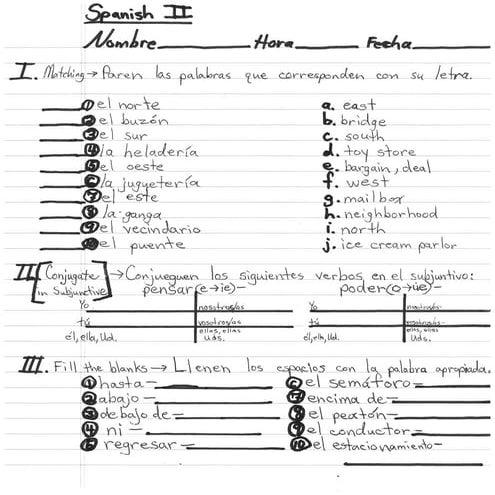 Spanish II
Nombre Hora Fecha
I. Matching → Paren las palabras que corresponden con su letra.
1 el norte a. east
2 el buzón b. bridge
3 el sur c. south
4 la heladería d. toy store
5 el oeste e. bargain, deal
6 la juguetería f. west
7 el este g. mailbox
8 la ganga h. neighborhood
9 el vecindario i. north
10 el puente j. ice cream parlor
II. [Conjugate in Subjunctive] → Conjueguen los siguientes verbos en el subjuntivo:
pensar(e→ie)- poder(o→ue)-
Yo nosotros/as Yo nosotros/as
tú vosotros/as tú vosotros/as
él, ella, Ud. ellos, ellas Uds. él, ella, Ud. ellos, ellas Uds.
III. Fill the blanks → Llenen los espacios con la palabra apropiada.
1 hasta- 6 el semáforo-
2 abajo- 7 encima de-
3 debajo de- 8 el peatón-
4 ni- 9 el conductor-
5 regresar- 10 el estacionamiento-